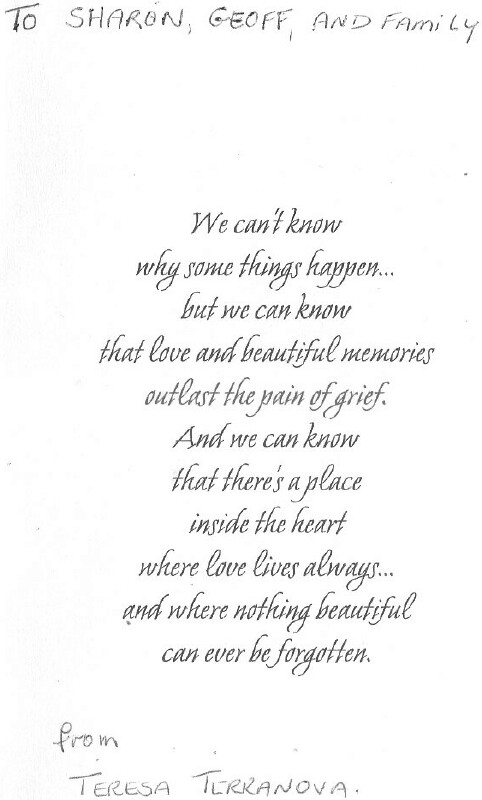 To SHARON, GEOFF, AND FAMILY
We can't know
why some things happen...
but we can know
that love and beautiful memories
outlast the pain of grief.
And we can know
that there's a place
inside the heart
where love lives always...
and where nothing beautiful
can ever be forgotten.
from
TERESA TERRANOVA.